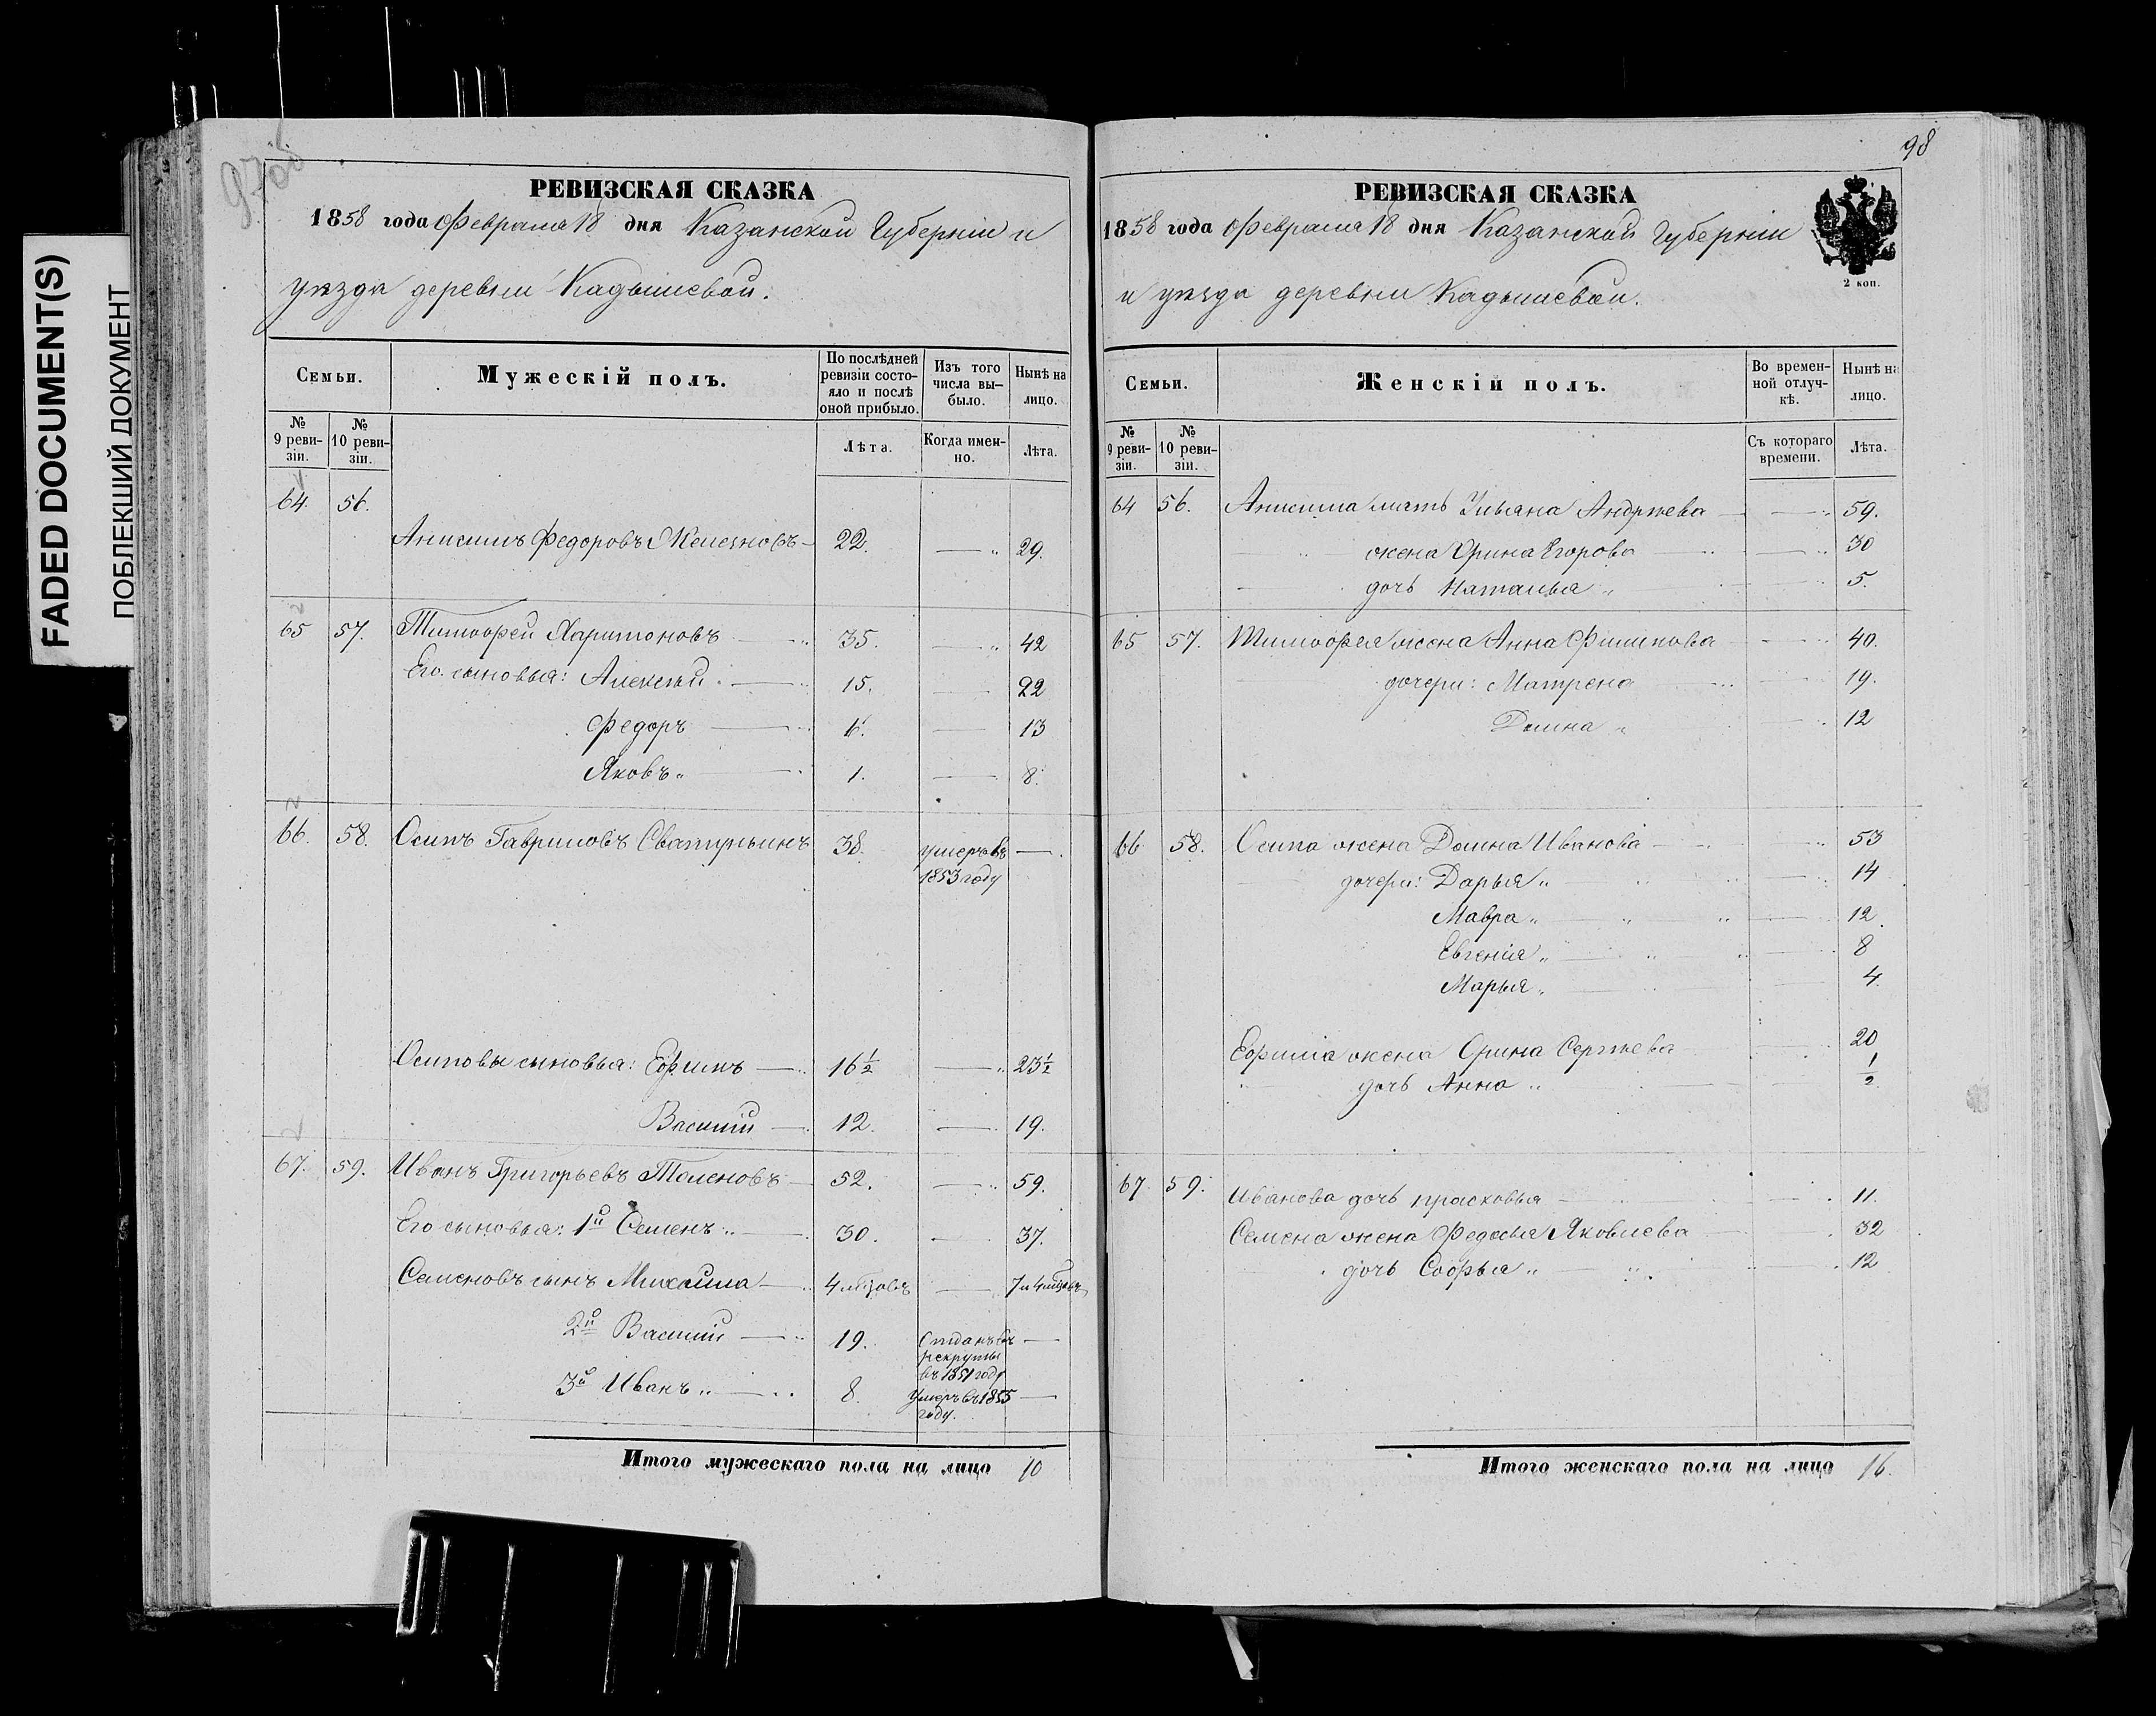 FADED DOCUMENT(S)
ПОБЛЕКШИЙ ДОКУМЕНТ
97об
РЕВИЗСКАЯ СКАЗКА
1858 года Февраля 18 дня Казанской Губерніи и
уѣзда деревни Кадышевой.
Семьи.
Мужескій полъ.
По послѣдней ревизіи состояло и послѣ оной прибыло.
Изъ того числа выбыло.
Нынѣ на лицо.
№ 9 ревизіи.
№ 10 ревизіи.
Лѣта.
Когда именно.
Лѣта.
64. 56.
Анисимъ Федоровъ 22. — 29.
65 57. Тимофей Харитоновъ 35. — 42
Его сыновья: Алексѣй 15. — 22
Федоръ 6. — 13
Яковъ 1. — 8.
66. 58. Осипъ Гавриловъ 38. умеръ въ —
1853 году
Осиповы сыновья: Ефимъ 16½ — 23½
Василій 12. — 19.
67. 59. Иванъ Григорьевъ 52. — 59.
Его сыновья: 1й Семенъ 30. — 37.
Семеновъ сынъ Михайла 4 мѣсяцовъ — 7 и 4 мѣсяцовъ
2й Василій 19. Отданъ въ —
рекруты
въ 1851 году
3й Иванъ 8. Умеръ въ 1855 —
году.
Итого мужескаго пола на лицо 10
98
РЕВИЗСКАЯ СКАЗКА
1858 года Февраля 18 дня Казанской Губерніи
и уѣзда деревни Кадышевой.
2 коп.
Семьи.
Женскій полъ.
Во временной отлучкѣ.
Нынѣ на лицо.
№ 9 ревизіи.
№ 10 ревизіи.
Съ котораго времени.
Лѣта.
64 56. Анисима мать Ульяна Андрѣева — 59.
жена Орина Егорова — 30
дочь Наталья — 5.
65 57. Тимофея жена Анна Филипова — 40.
дочери: Матрена — 19.
Домна — 12
66 58. Осипа жена Домна Иванова 53
дочери: Дарья — 14
Мавра — 12
Евгенія — 8
Марья — 4.
Ефима жена Орина Сергѣева — 20
дочь Анна — ½
67 59. Иванова дочь прасковья — 11.
Семена жена Федосья Яковлева 32
дочь Софья 12
Итого женскаго пола на лицо 16.